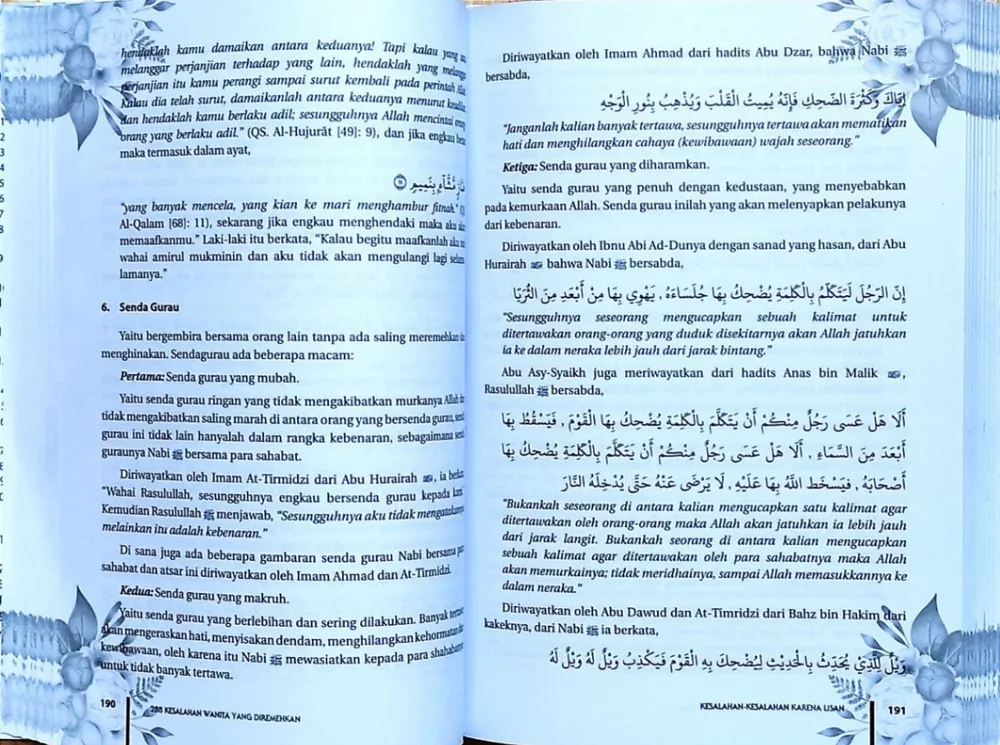 hendaklah kamu damaikan antara keduanya! Tapi kalau yang
melanggar perjanjian terhadap yang lain, hendaklah yang
perjanjian itu kamu perangi sampai surut kembali pada perintah
Kalau dia telah surut, damaikanlah antara keduanya menurut
dan hendaklah kamu berlaku adil; sesungguhnya Allah mencintai
orang yang berlaku adil." (QS. Al-Hujurât [49]: 9), dan jika engkau
maka termasuk dalam ayat,
بِنَمِيمٍ ۝
"yang banyak mencela, yang kian ke mari menghambur fitnah."
Al-Qalam [68]: 11), sekarang jika engkau menghendaki maka
memaafkanmu." Laki-laki itu berkata, "Kalau begitu maafkanlah
wahai amirul mukminin dan aku tidak akan mengulangi lagi
lamanya."
6. Senda Gurau
Yaitu bergembira bersama orang lain tanpa ada saling meremehkan
menghinakan. Sendagurau ada beberapa macam:
Pertama: Senda gurau yang mubah.
Yaitu senda gurau ringan yang tidak mengakibatkan murkanya Allah
tidak mengakibatkan saling marah di antara orang yang bersenda gurau,
gurau ini tidak lain hanyalah dalam rangka kebenaran, sebagaimana
guraunya Nabi ﷺ bersama para sahabat.
Diriwayatkan oleh Imam At-Tirmidzi dari Abu Hurairah, ia
"Wahai Rasulullah, sesungguhnya engkau bersenda gurau kepada
Kemudian Rasulullah ﷺ menjawab, "Sesungguhnya aku tidak
melainkan itu adalah kebenaran."
Di sana juga ada beberapa gambaran senda gurau Nabi bersama
sahabat dan atsar ini diriwayatkan oleh Imam Ahmad dan At-Tirmidzi.
Kedua: Senda gurau yang makruh.
Yaitu senda gurau yang berlebihan dan sering dilakukan. Banyak
akan mengeraskan hati, menyisakan dendam, menghilangkan kehormatan
kewibawaan, oleh karena itu Nabi ﷺ mewasiatkan kepada para
untuk tidak banyak tertawa.
190
288 KESALAHAN WANITA YANG DIREMEHKAN
Diriwayatkan oleh Imam Ahmad dari hadits Abu Dzar, bahwa Nabi ﷺ
bersabda,
إِيَّاكَ وَكَثْرَةَ الضَّحِكِ فَإِنَّهُ يُمِيتُ الْقَلْبَ وَيُذْهِبُ بِنُورِ الْوَجْهِ
"Janganlah kalian banyak tertawa, sesungguhnya tertawa akan mematikan
hati dan menghilangkan cahaya (kewibawaan) wajah seseorang."
Ketiga: Senda gurau yang diharamkan.
Yaitu senda gurau yang penuh dengan kedustaan, yang menyebabkan
pada kemurkaan Allah. Senda gurau inilah yang akan melenyapkan pelakunya
dari kebenaran.
Diriwayatkan oleh Ibnu Abi Ad-Dunya dengan sanad yang hasan, dari Abu
Hurairah bahwa Nabi ﷺ bersabda,
إِنَّ الرَّجُلَ لَيَتَكَلَّمُ بِالْكَلِمَةِ يُضْحِكُ بِهَا جُلَسَاءَهُ , يَهْوِي بِهَا مِنْ أَبْعَدِ مِنَ الثُّرَيَّا
"Sesungguhnya seseorang mengucapkan sebuah kalimat untuk
ditertawakan orang-orang yang duduk disekitarnya akan Allah jatuhkan
ia ke dalam neraka lebih jauh dari jarak bintang."
Abu Asy-Syaikh juga meriwayatkan dari hadits Anas bin Malik,
Rasulullah ﷺ bersabda,
أَلَا هَلْ عَسَى رَجُلٌ مِنْكُمْ أَنْ يَتَكَلَّمَ بِالْكَلِمَةِ يُضْحِكُ بِهَا الْقَوْمَ , فَيَسْقُطُ بِهَا
أَبْعَدَ مِنَ السَّمَاءِ , أَلَا هَلْ عَسَى رَجُلٌ مِنْكُمْ أَنْ يَتَكَلَّمَ بِالْكَلِمَةِ يُضْحِكُ بِهَا
أَصْحَابَهُ , فَيَسْخَطُ اللَّهُ بِهَا عَلَيْهِ , لَا يَرْضَى عَنْهُ حَتَّى يُدْخِلَهُ النَّارَ
"Bukankah seseorang di antara kalian mengucapkan satu kalimat agar
ditertawakan oleh orang-orang maka Allah akan jatuhkan ia lebih jauh
dari jarak langit. Bukankah seorang di antara kalian mengucapkan
sebuah kalimat agar ditertawakan oleh para sahabatnya maka Allah
akan memurkainya; tidak meridhainya, sampai Allah memasukkannya ke
dalam neraka."
Diriwayatkan oleh Abu Dawud dan At-Timridzi dari Bahz bin Hakim dari
kakeknya, dari Nabi ﷺ ia berkata,
وَيْلٌ لِلَّذِي يُحَدِّثُ بِالْحَدِيْثِ لِيُضْحِكَ بِهِ الْقَوْمَ فَيَكْذِبُ وَيْلٌ لَهُ وَيْلٌ لَهُ
KESALAHAN-KESALAHAN KARENA LISAN
191